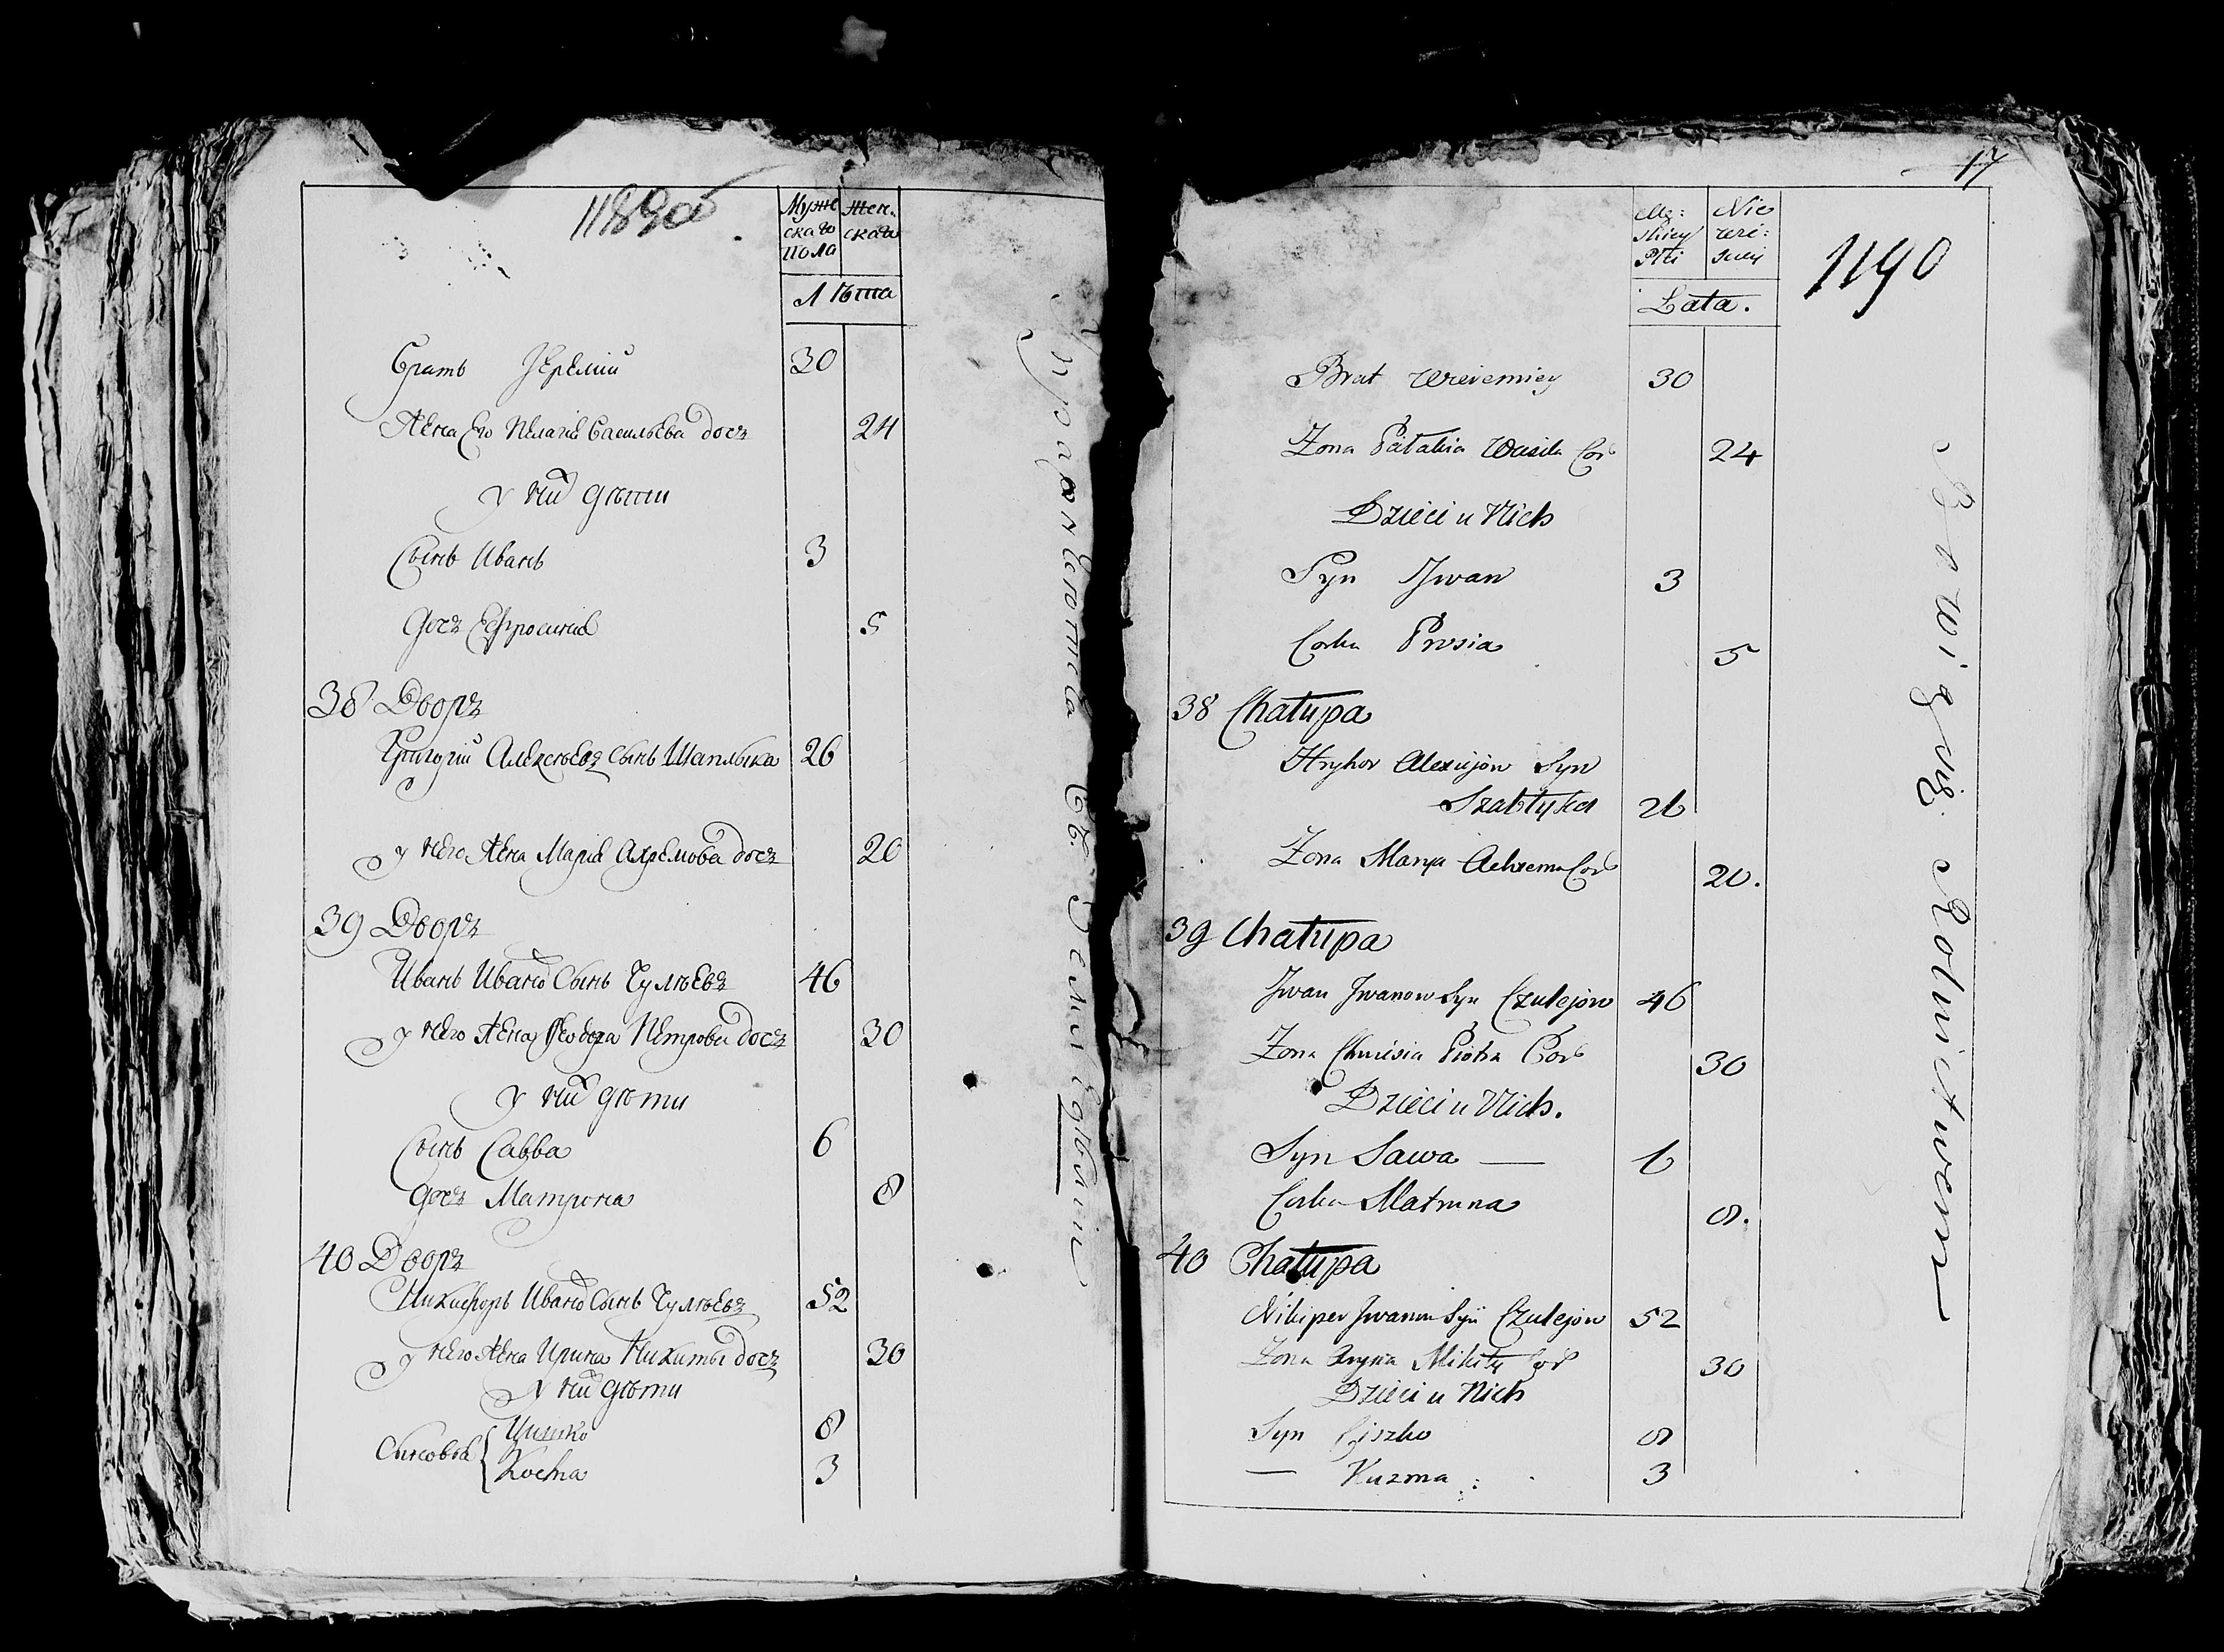 1189об
Муже
скаго
пола
Жен.
скаго
Лѣта
Братъ Иеремий 30
Жена Его Пелагия Васильева дочь 24
у них дѣти
Сынъ Иванъ 3
дочь Ефросиния 5
38 Дворъ
Григорий Алексѣевъ Сынъ Шаплыка 26
у него Жена Мария Ахремова дочь 20
39 Дворъ
Иванъ Иванов Сынъ Чулѣевъ 46
у него Жена Феодора Петрова дочь 30
у них дѣти
Сынъ Савва 6
дочь Матрона 8
40 Дворъ
Никифоръ Иванов Сынъ Чулѣевъ 52
у него Жена Ирина Никиты дочь 30
у них дѣти
Сыновья
8
Косма 3
17
1190
Mę:
skiey
Płci
Nie
wie:
sciey
Lata.
Brat 30
Zona Wasila Cor 24
Dzieci u Nich
Syn Jwan 3
Corka Prosia 5
38 Chałupa
Hryhor Alexiejow Syn
Szabłyka 26
Zona Marya Achrema Cor 20.
39 Chałupa
Jwan Jwanow Syn Czulejow 46
Zona Piotra Cor 30
Dzieci u Nich.
Syn Sawa — 6
Corka Matruna 8.
40 Chałupa
Nikiper Jwanow Syn Czulejow 52
Zona Aryna Mikity Cor 30
Dzieci u Nich
Syn Ciszko 8
— Kuzma 3
Rolnictwem